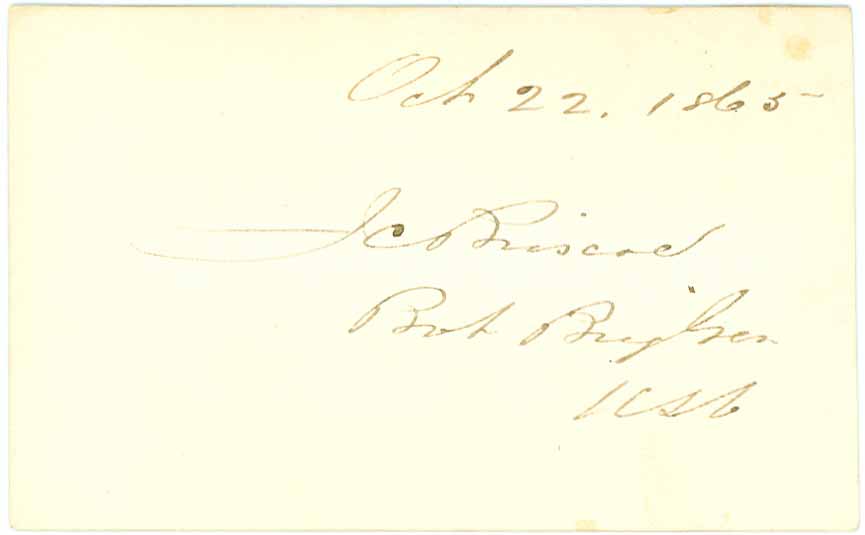 Oct 22. 1865
J C Briscoe
Bvt Brig Gen
USV